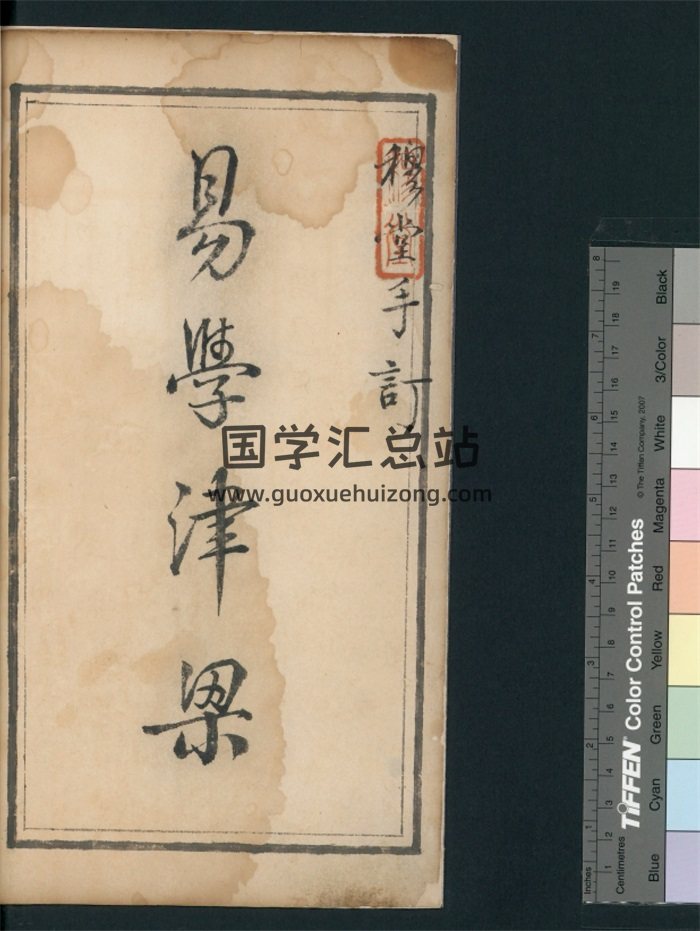 穆堂手訂
易學津梁
国学汇总站
www.guoxuehuizong.com
Inches
1
2
3
4
5
6
7
8
Centimetres
1
2
3
4
5
6
7
8
9
10
11
12
13
14
15
16
17
18
19
TIFFEN® Color Control Patches
© The Tiffen Company, 2007
Blue
Cyan
Green
Yellow
Red
Magenta
White
3/Color
Black